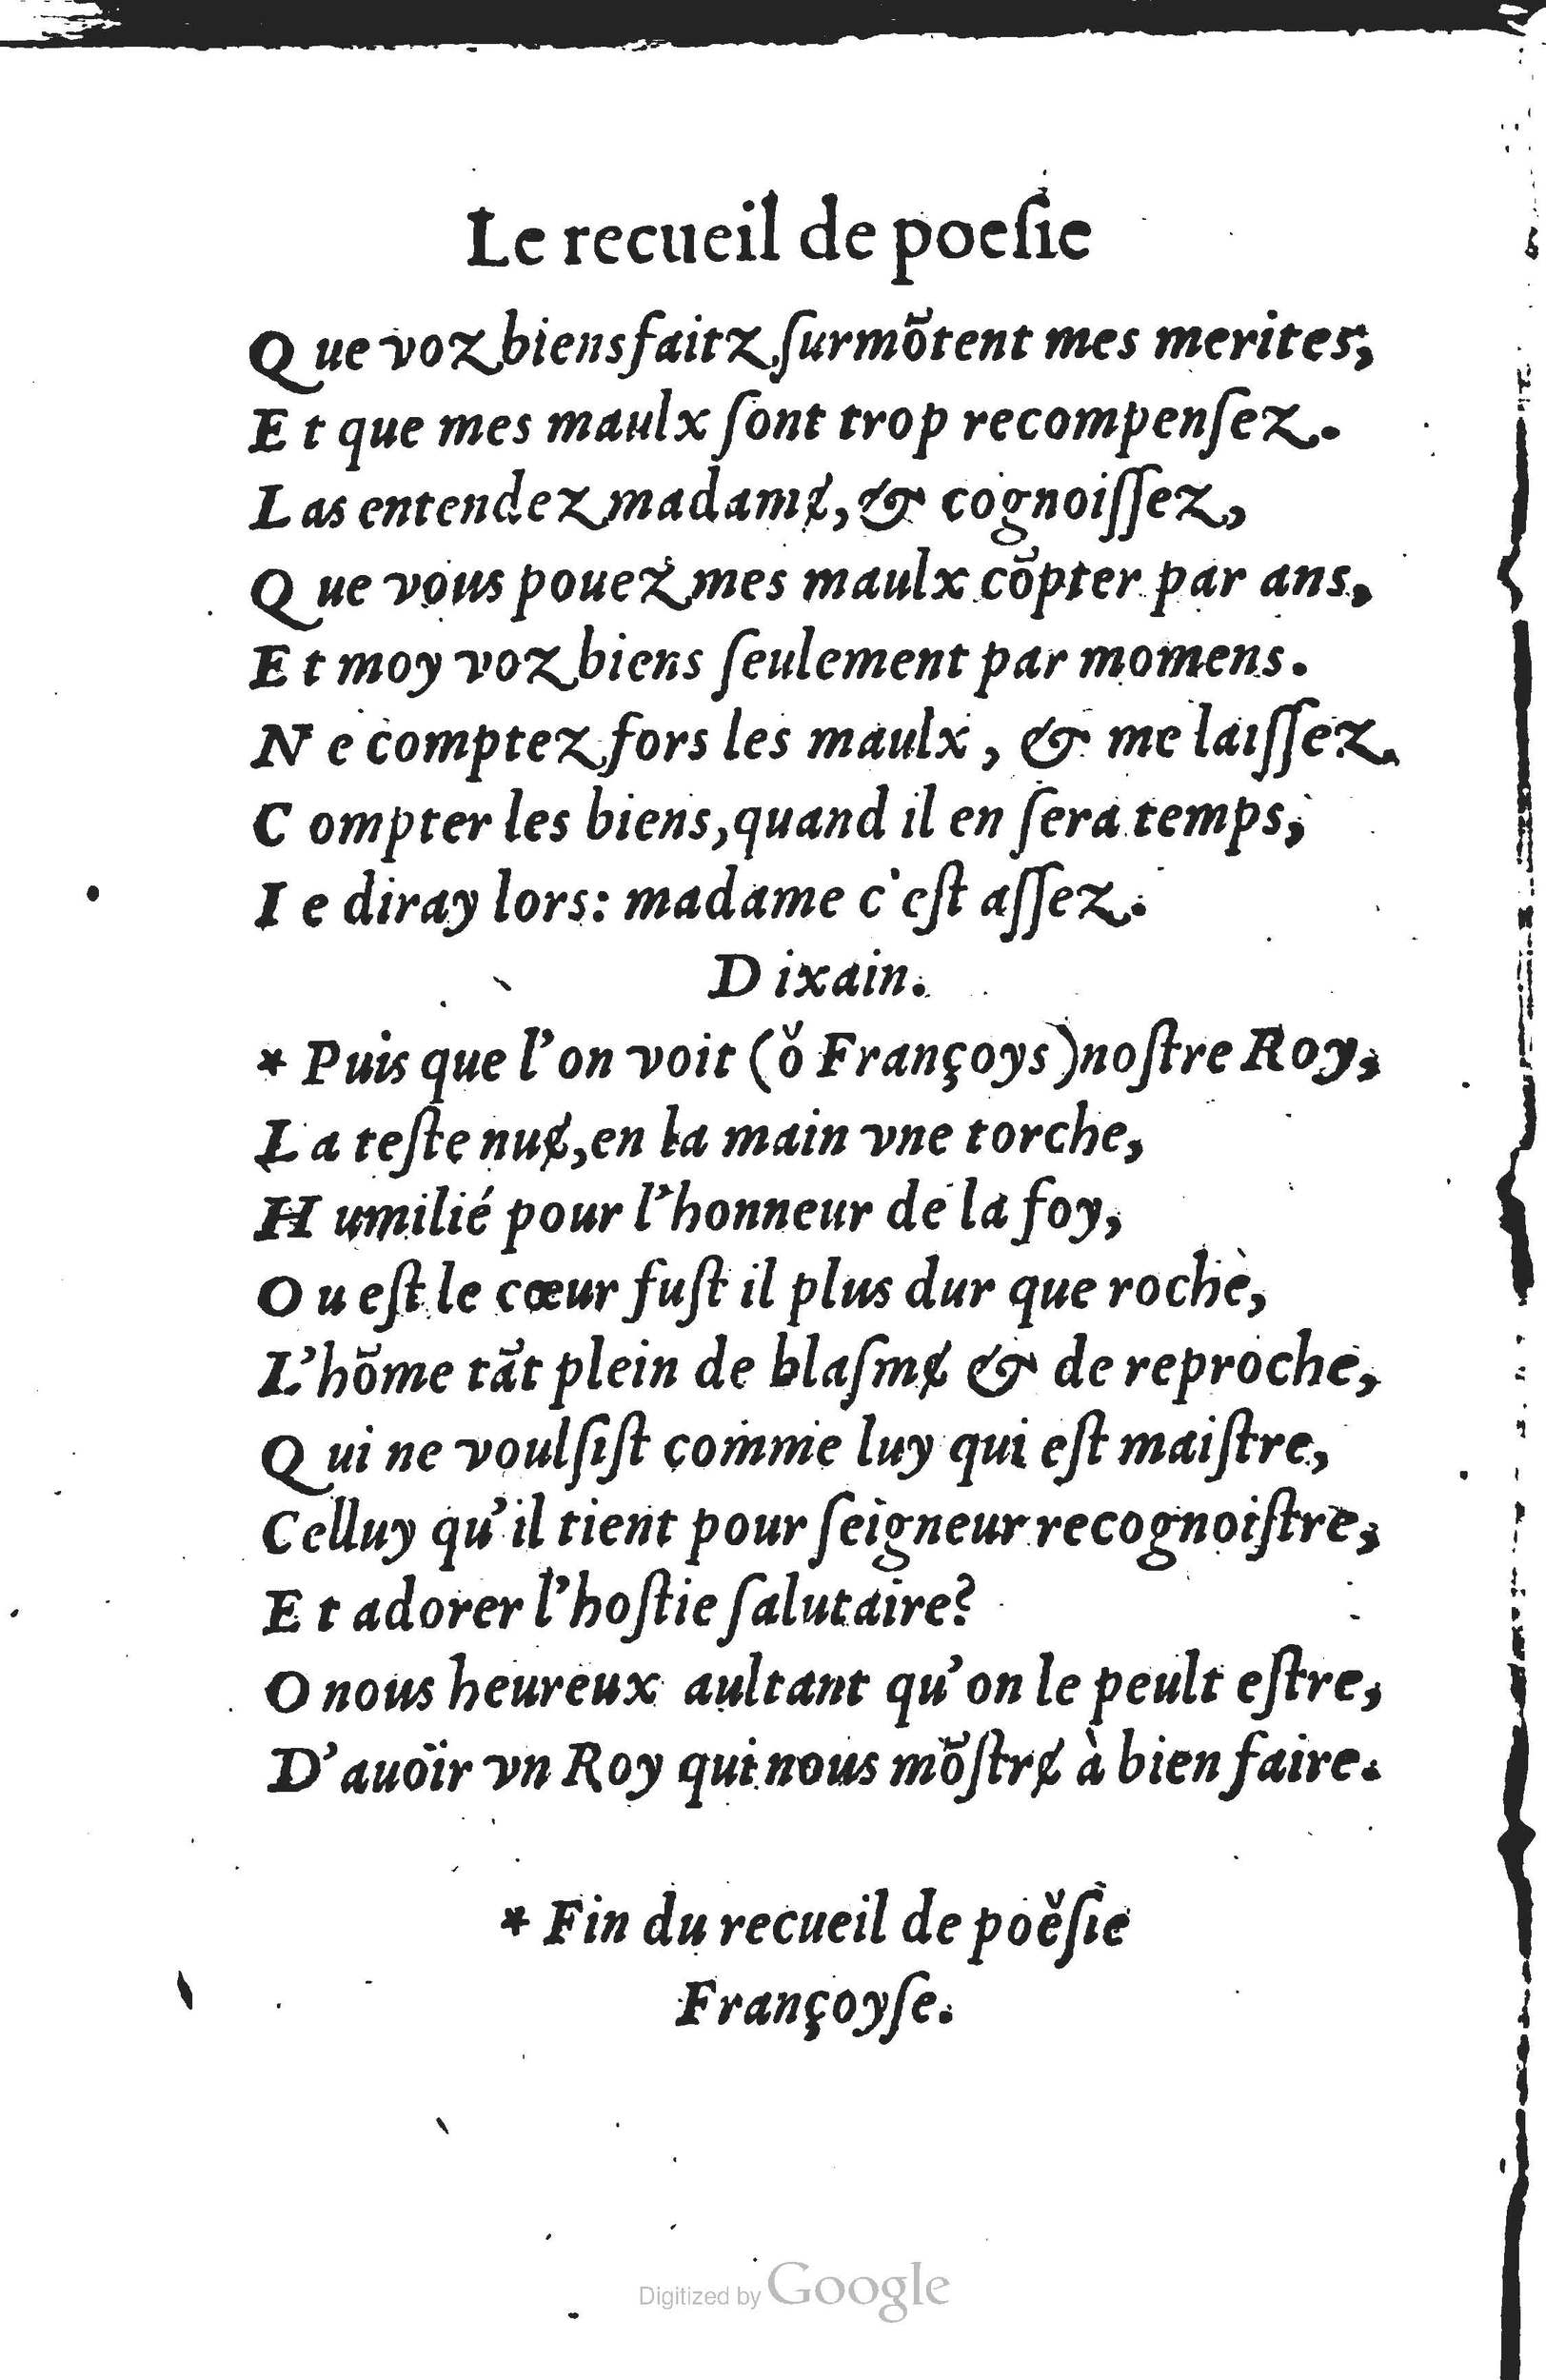 Le recueil de poeſie
Que voz biensfaitz ſurmõtent mes merites,
Et que mes maulx ſont trop recompenſez.
Las entendez madamɇ, & cognoiſſez,
Que vous pouez mes maulx cõpter par ans,
Et moy voz biens ſeulement par momens.
Ne comptez fors les maulx, & me laiſſez
Compter les biens, quand il en ſera temps,
Ie diray lors: madame c'eſt aſſez.
Dixain.
* Puis que l'on voit (ǒ Françoys) noſtre Roy,
La teſte nuɇ, en la main vne torche,
Humilié pour l'honneur de la foy,
Ou eſt le cœur fuſt il plus dur que roche,
L'hõme tãt plein de blaſmɇ & de reproche,
Qui ne voulſiſt comme luy qui eſt maiſtre,
Celluy qu'il tient pour ſeigneur recognoiſtre,
Et adorer l'hoſtie ſalutaire?
O nous heureux aultant qu'on le peult eſtre,
D'auoir vn Roy qui nous mõſtrɇ à bien faire.
* Fin du recueil de poěſie
Françoyſe.
Digitized by Google